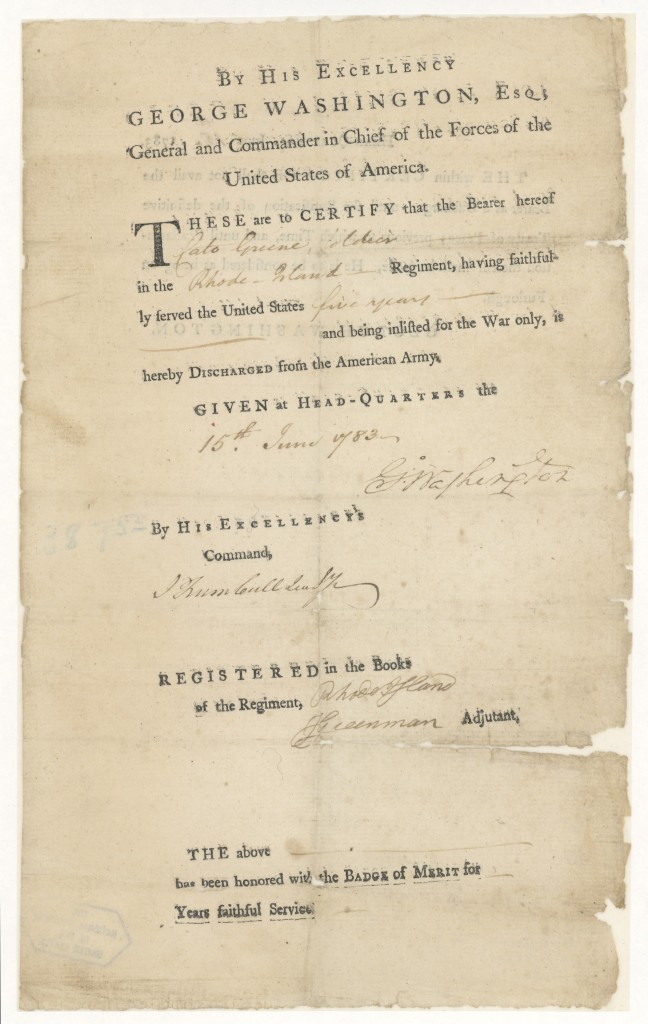 BY HIS EXCELLENCY
GEORGE WASHINGTON, ESQ;
General and Commander in Chief of the Forces of the
United States of America.
THESE are to CERTIFY that the Bearer hereof
Cato Greene, Soldier
in the Rhode-Island Regiment, having faithful-
ly served the United States five years
and being inlisted for the War only, is
hereby DISCHARGED from the American Army.
GIVEN at HEAD-QUARTERS the
15th June 1783
G. Washington
By HIS EXCELLENCY'S
Command,
J Trumbull
REGISTERED in the Books
of the Regiment, Rhode Island
Greenman Adjutant,
THE above
has been honored with the BADGE of MERIT for
Years faithful Service.